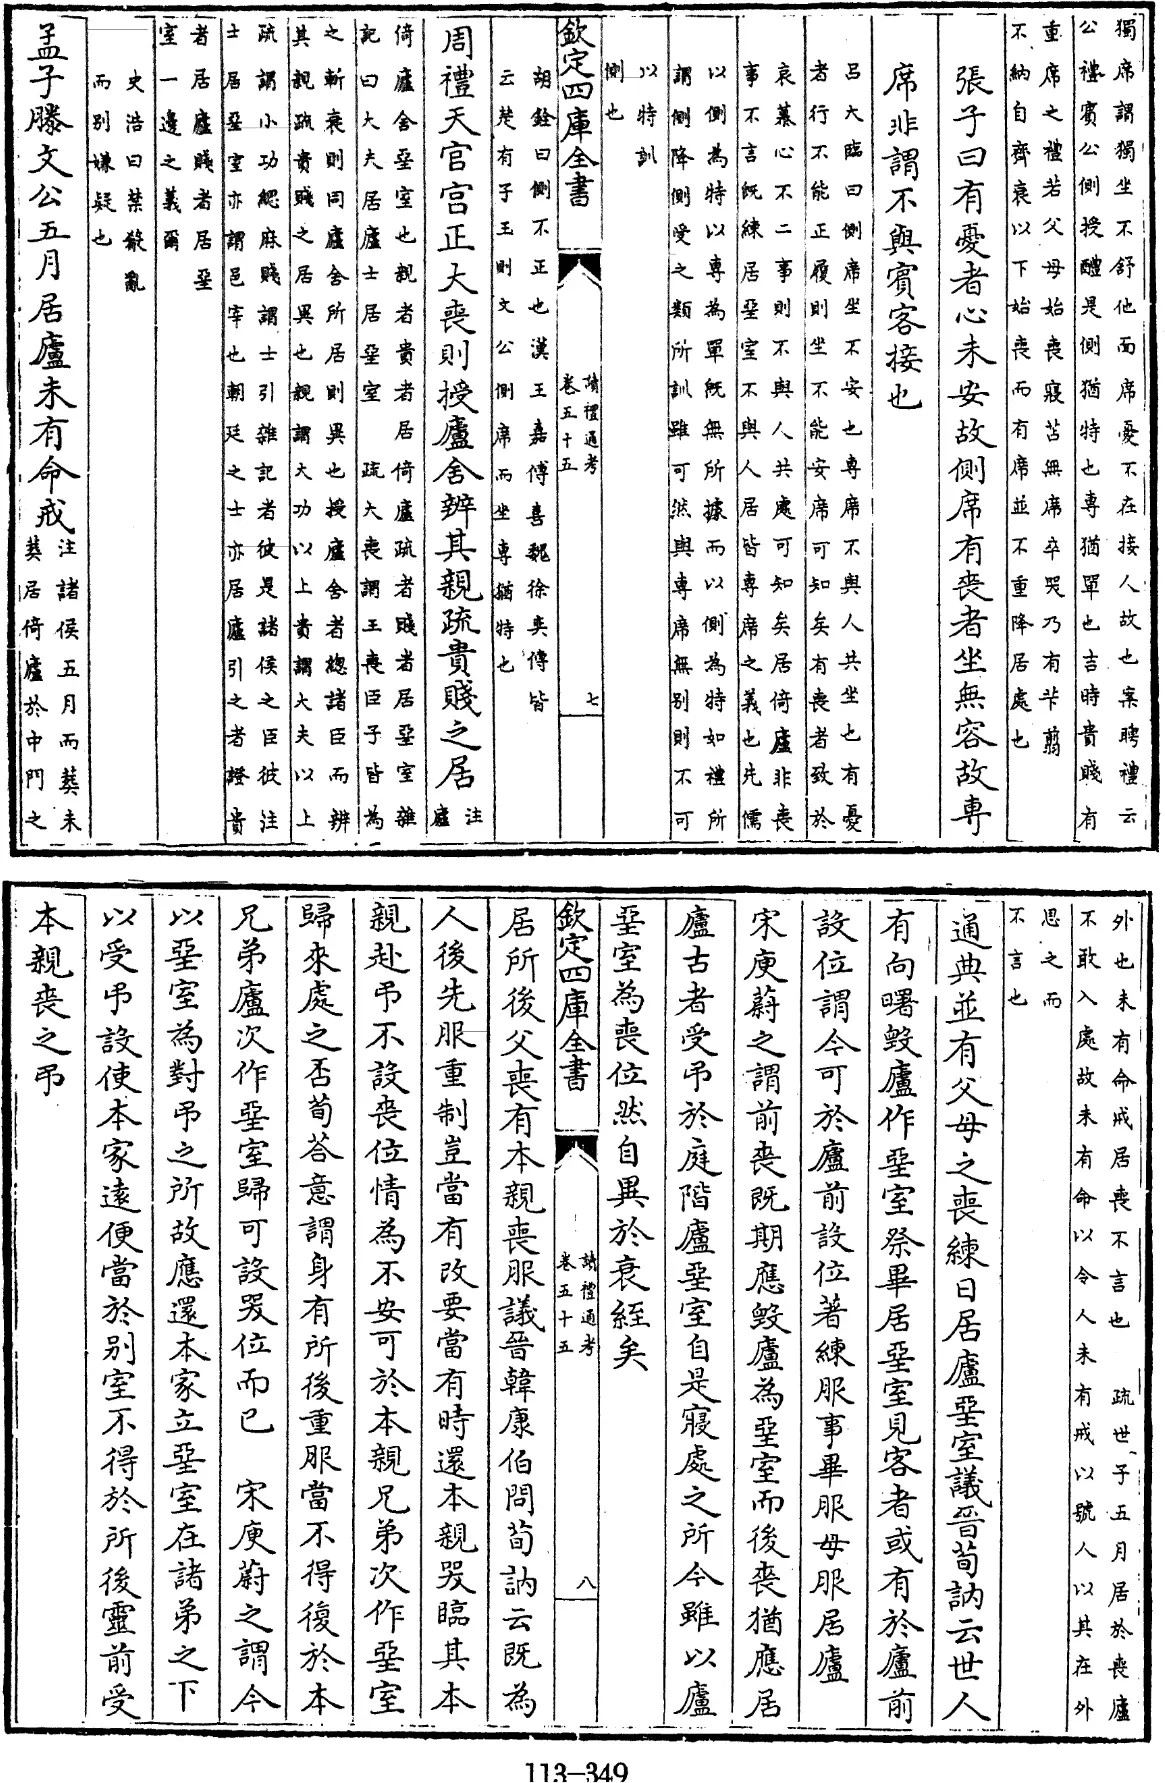 獨席謂獨坐不舒他面席憂不在接人故也案聘禮云
公禮賓公側授醴是側猶特也專猶單也吉時貴賤有
重席之禮若父母始喪寢苫無席卒哭乃有芐翦
不納自齊衰以下始喪而有席並不重降居處也
張子曰有憂者心未安故側席有喪者坐無容故專
席非謂不與賓客接也
呂大臨曰側席坐不安也專席不與人共坐也有憂
者行不能正履則坐不能安席可知矣有喪者致於
哀慕心不二事則不與人共處可知矣居倚廬非喪
事不言既練居堊室不與人居皆專席之義也先儒
以側為特以專為單既無所據而以側為特如禮所
謂側降側受之類所訓雖可然與專席無別則不可
以特訓
側也
欽定四庫全書
讀禮通考
卷五十五
七
胡銓曰側不正也漢王嘉傅喜魏徐奕傳皆
云楚有子玉則文公側席而坐專猶特也
周禮天官宮正大喪則授廬舍辨其親疏貴賤之居
注
廬
倚廬舍堊室也親者貴者居倚廬疏者賤者居堊室雜
記曰大夫居廬士居堊室 疏大喪謂王喪臣子皆為
之斬衰則同廬舍所居則異也授廬舍者總諸臣而辨
其親疏貴賤之居異也親謂大功以上貴謂大夫以上
疏謂小功緦麻賤謂士引雜記者彼是諸侯之臣彼注
士居堊室亦謂邑宰也朝廷之士亦居廬引之者證貴
者居廬賤者居堊
室一邊之義爾
史浩曰禁殽亂
而別嫌疑也
孟子滕文公五月居廬未有命戒
注諸侯五月而葬未
葬居倚廬於中門之
外也未有命戒居喪不言也 疏世子五月居於喪廬
不敢入處故未有命以令人未有戒以號人以其在外
思之而
不言也
通典並有父母之喪練日居廬堊室議晉荀訥云世人
有向曙毀廬作堊室祭畢居堊室見客者或有於廬前
設位謂今可於廬前設位著練服事畢服母服居廬
宋庾蔚之謂前喪既期應毀廬為堊室而後喪猶應居
廬古者受弔於庭階廬堊室自是寢處之所今雖以廬
堊室為喪位然自異於衰絰矣
欽定四庫全書
讀禮通考
卷五十五
八
居所後父喪有本親喪服議晉韓康伯問荀訥云既為
人後先服重制豈當有改要當有時還本親哭臨其本
親赴弔不設喪位情為不安可於本親兄弟次作堊室
歸來處之否荀答意謂身有所後重服當不得復於本
兄弟廬次作堊室歸可設哭位而已 宋庾蔚之謂今
以堊室為對弔之所故應還本家立堊室在諸弟之下
以受弔設使本家遠便當於別室不得於所後靈前受
本親喪之弔
113–349